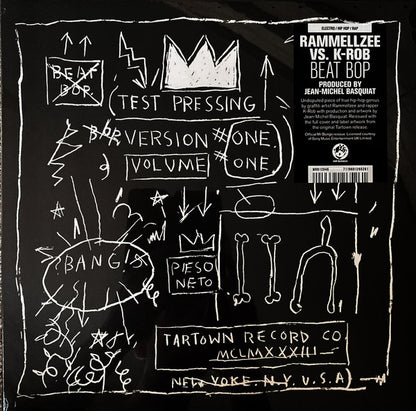 BEAT
BOP.
TEST PRESSING
BOP VERSION #ONE.
VOLUME #ONE
BANG!
PESO
NETO
TARTOWN RECORD CO.
MCLMXXXIII
NEW YOKE. N.Y. U.S.A
ELECTRO / HIP HOP / RAP
RAMMELLZEE
VS. K-ROB
BEAT BOP
PRODUCED BY
JEAN-MICHEL BASQUIAT
Undisputed piece of true hip-hop genius
by graffiti artist Rammellzee and rapper
K-Rob with production and artwork by
Jean-Michel Basquiat. Reissued with
the full cover and label artwork from
the original Tartown release.
Official Mr Bongo reissue. Licensed courtesy
of Sony Music Entertainment UK Limited.